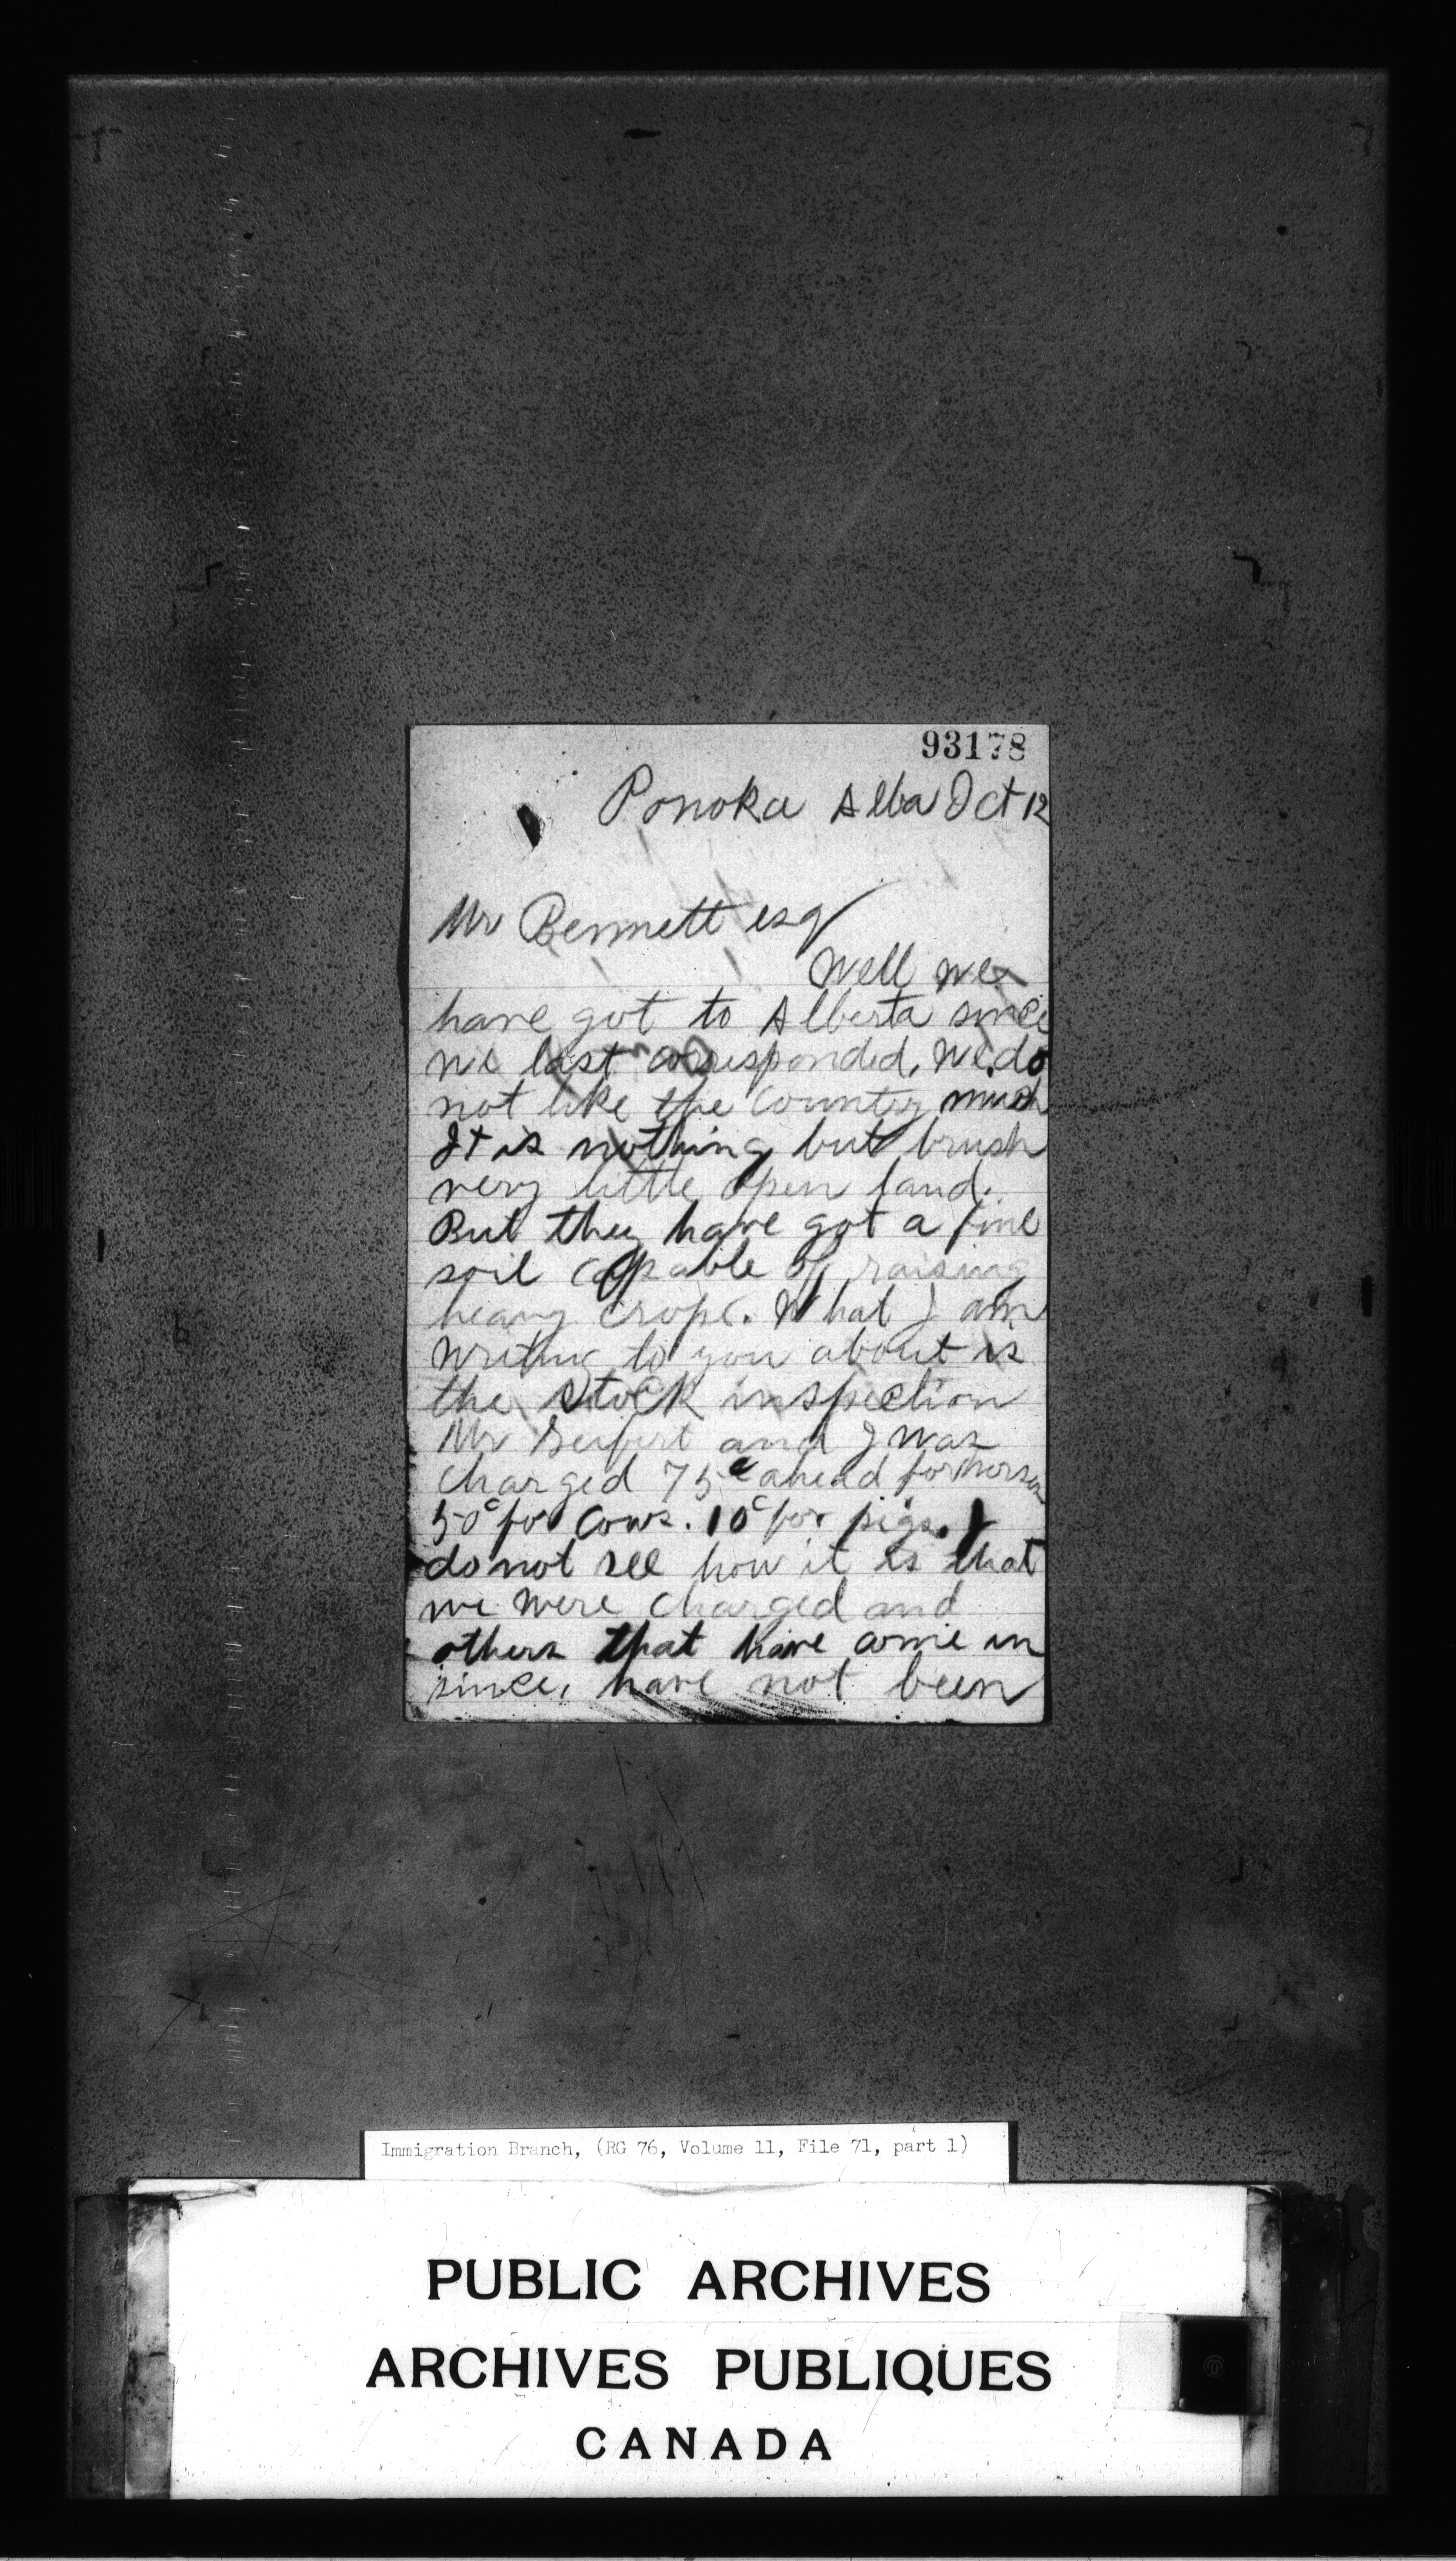 93178
Ponoka Alba Oct 12
Mr Bennett esq
Well we
have got to Alberta since
we last corresponded. We do
not like the Country much
It is nothing but brush
very little open land.
But they have got a fine
soil capable of raising
heavy crops. What I am
writing to you about is
the Stock inspection
Mr Seifert and I was
charged 75c ahead for horses
50c for Cows. 10c for pigs. I
do not see how it is that
we were charged and
others that have come in
since, have not been
Immigration Branch, (RG 76, Volume 11, File 71, part 1)
PUBLIC ARCHIVES
ARCHIVES PUBLIQUES
CANADA